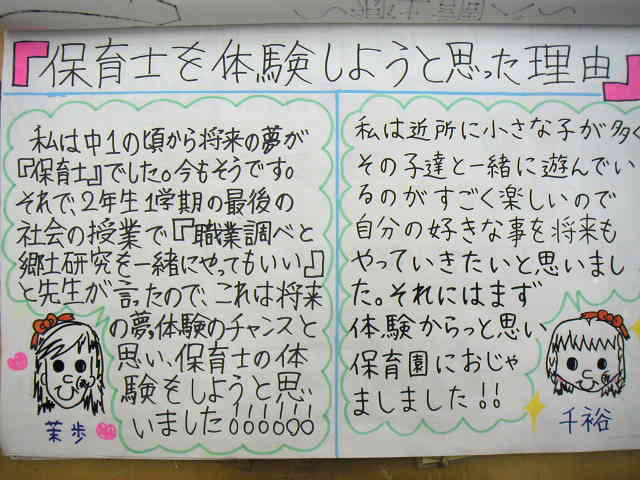 『保育士を体験しようと思った理由』
私は中1の頃から将来の夢が
『保育士』でした。今もそうです。
それで、2年生1学期の最後の
社会の授業で『職業調べと
郷土研究を一緒にやってもいい』
と先生が言ったので、これは将来
の夢、体験のチャンスと
思い、保育士の体
験をしようと思い
いました!!!!!!
茉歩
私は近所に小さな子が多く
その子達と一緒に遊んでい
るのがすごく楽しいので
自分の好きな事を将来も
やっていきたいと思いまし
た。それにはまず
体験からっと思い
保育園におじゃ
ましました!!
千裕